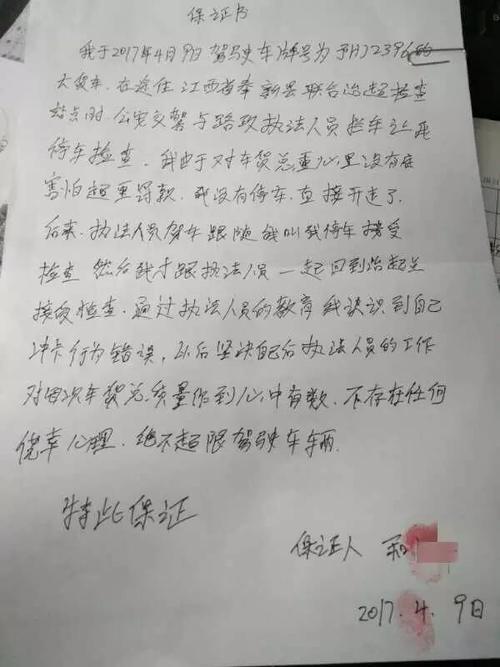 保证书
我于2017年4月9日驾驶车牌号为予HJ2396的
大货车.在途径江西省奉新县联合治超检查
站点时.公安交警与路政执法人员拦车
停车检查.我由于对车货总重心里没有底
害怕超重罚款.我没有停车.直接开走了.
后来.执法人员驾车跟随我叫我停车接受
检查 然后我才跟执法人员一起回到治超站
接受检查.通过执法人员的教育我认识到自己
冲卡行为错误,以后坚决配合执法人员的工作
对每次车货总质量做到心中有数.不存在任何
侥幸心理.绝不超限驾驶车辆.
特此保证
保证人
2017.4.9日